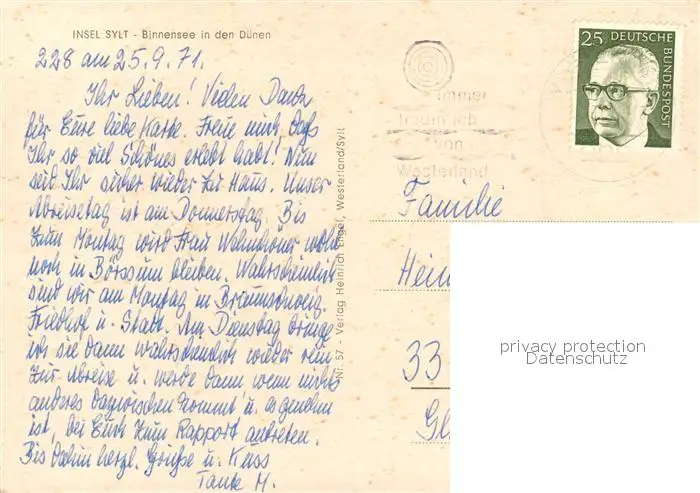 INSEL SYLT - Binnensee in den Dünen
228 am 25.9.71.
Ihr Lieben! Vielen Dank
für Eure liebe Karte. Freue mich, daß
Ihr so viel Schönes erlebt habt! Nun
seid Ihr sicher wieder zu Haus. Unser
Abreisetag ist am Donnerstag. Bis
zum Montag wird Frau wohl
noch in Börssum bleiben. Wahrscheinlich
sind wir am Montag in Braunschweig.
Friedhof u. Stadt. Am Dienstag bringe
ich sie dann wahrscheinlich wieder rein
zur Abreise u. werde dann wenn nichts
anderes dazwischen kommt u. es genehm
ist, bei Euch zum Rapport antreten.
Bis dahin herzl. Grüße u. Kuss
Tante M.
Nr. 57 - Verlag Heinrich Engel, Westerland/Sylt
immer
traum
von
Westerland
25 DEUTSCHE
BUNDESPOST
Familie
Hein
33
privacy protection
Datenschutz